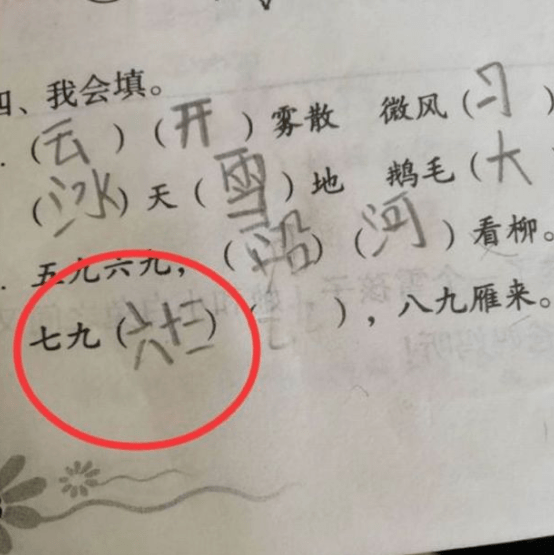 四、我会填。
. (云) (开) 雾散 微风 (习)
(冰) 天 (雪) 地 鹅毛 (大
. 五九六九，(沿) (河) 看柳。
七九 (六十三) ( )，八九雁来。